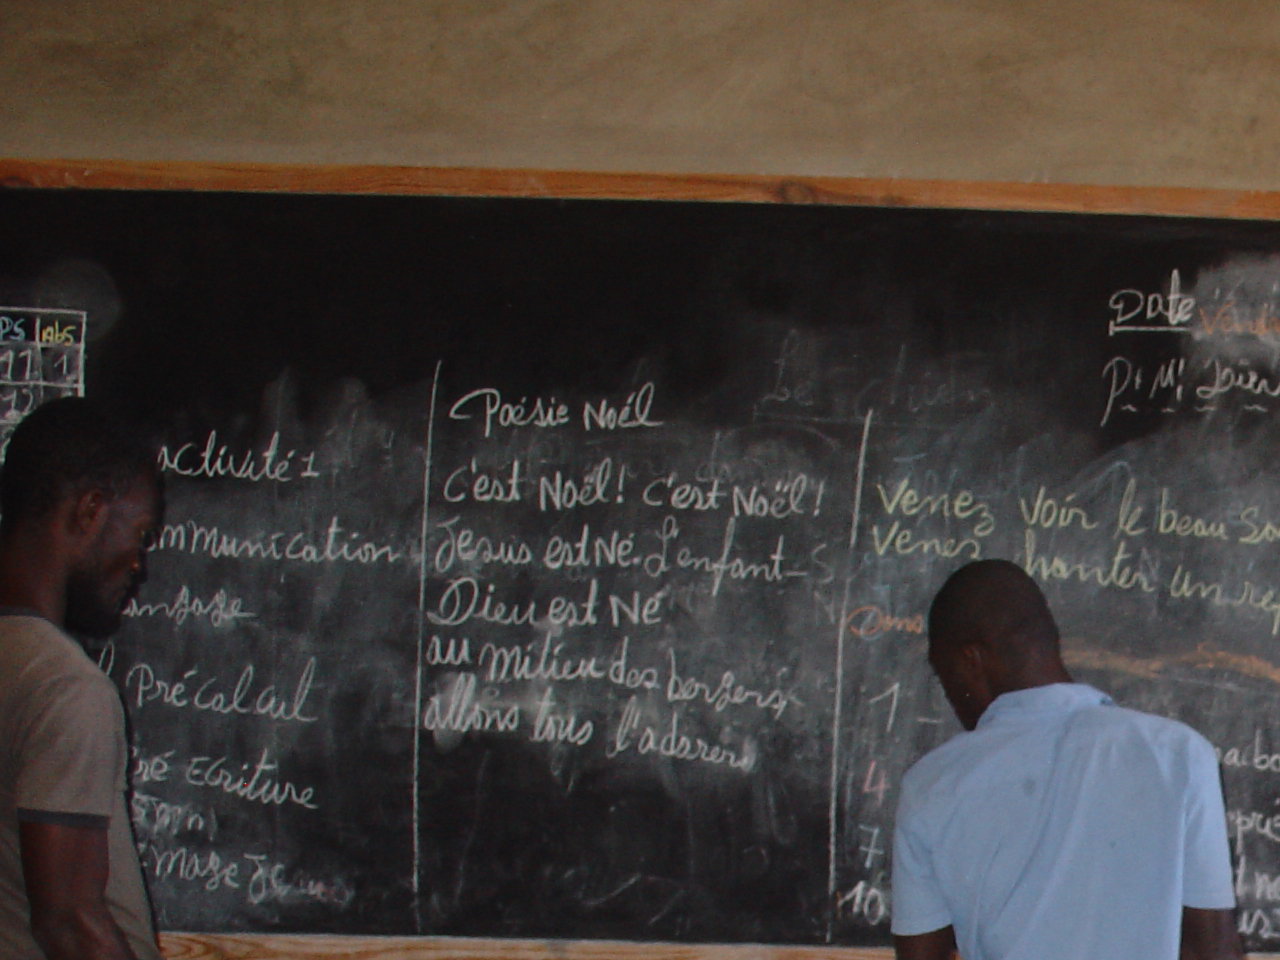 PS Abs
11 1
12
activité 1
mmunication
angage
Précalcul
ré Ecriture
mage Je
Poésie Noél
C'est Noël! C'est Noël!
Jesus est Né. L'enfant-
Dieu est Né
au milieu des bergers,
allons tous l'adorer
Date Vendr
P. M.
Venez voir le beau So
Venez hanter un re
Dans
1 -
4
7
10